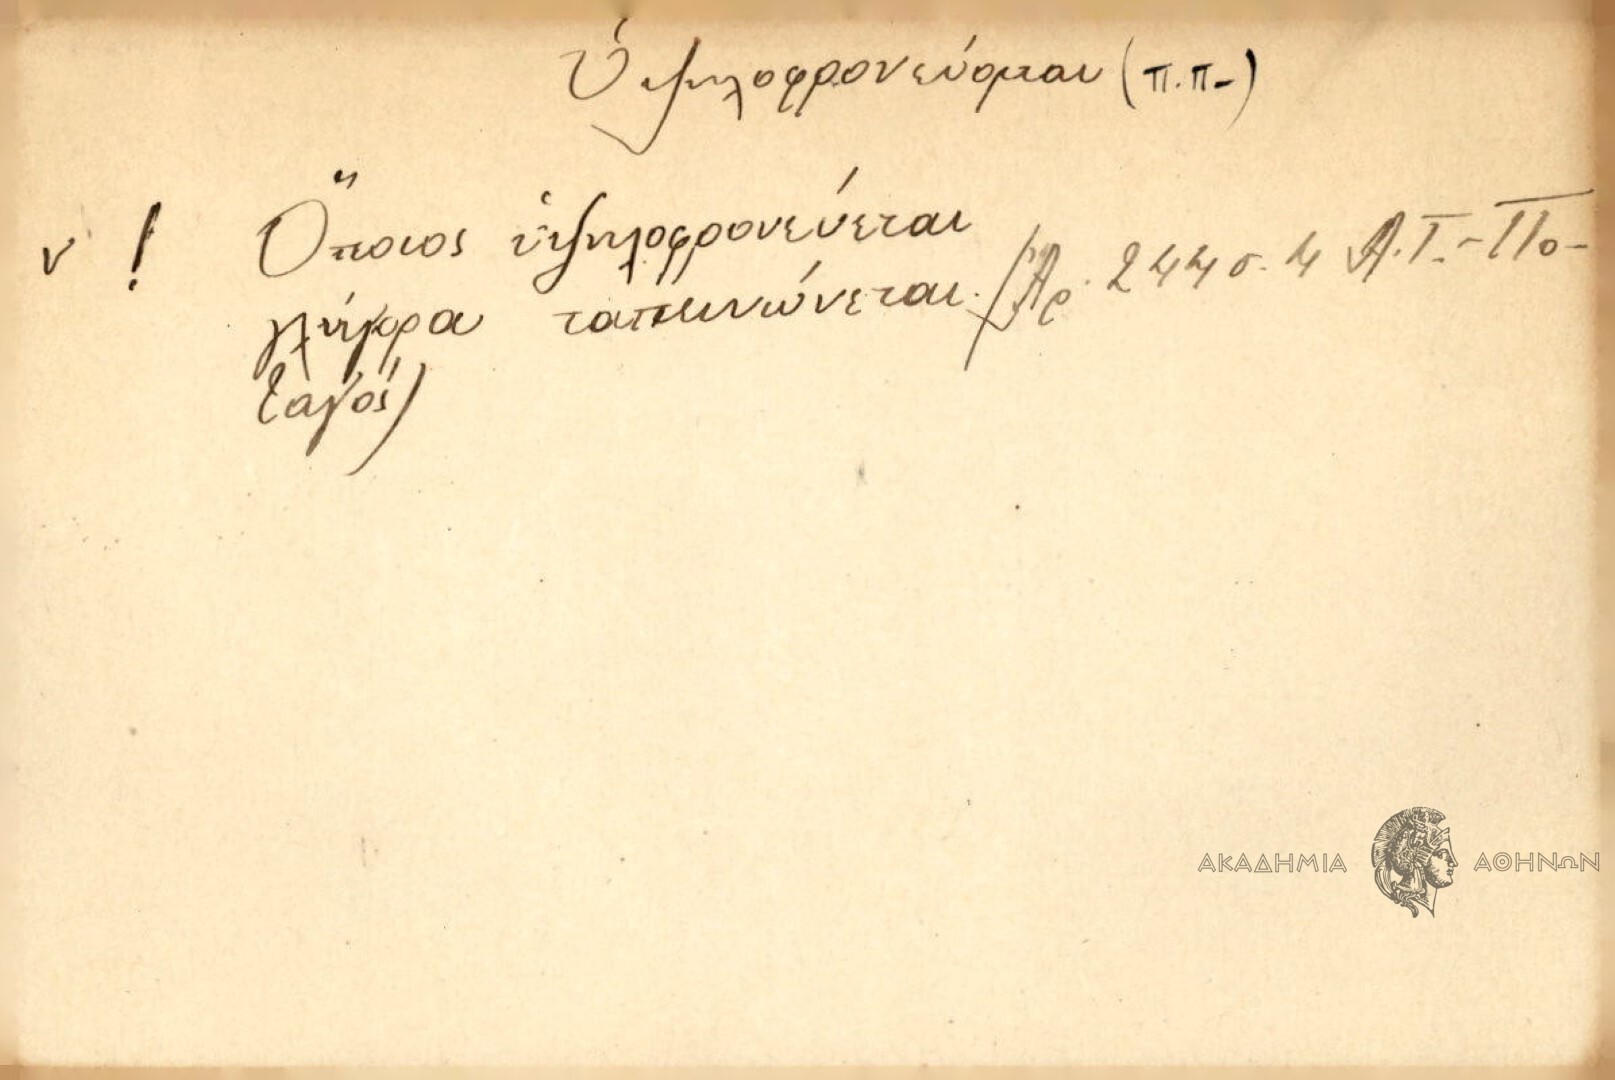 Ὑψηλοφρονεύομαι (π.π-)
ν ! Ὅποιος ὑψηλοφρονεύεται
γλήγορα ταπεινώνεται. (Ἀρ. 244 σ. 4 Α.Τ.-Πο-
ταγός)
ΑΚΑΔΗΜΙΑ ΑΘΗΝΩΝ